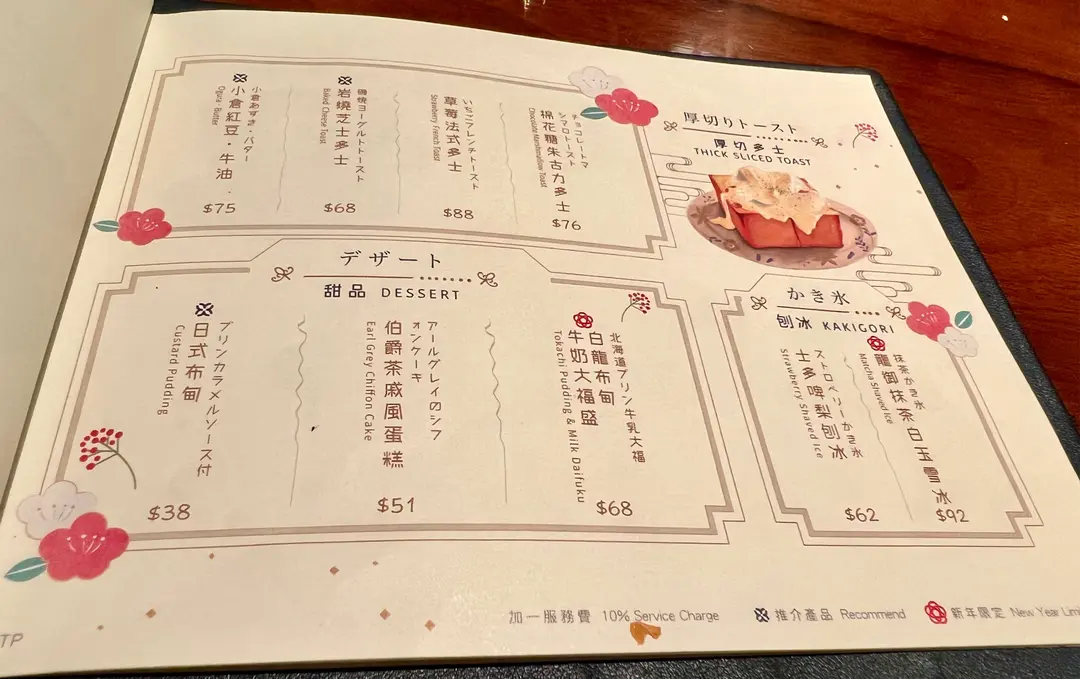 厚切りトースト
厚切多士
THICK SLICED TOAST
チョコレートマ
シマロトースト
棉花糖朱古力多士
Chocolate Marshmallow Toast
$76
草莓法式多士
Strawberry French Toast
$88
磯焼ヨーグルトトースト
岩燒芝士多士
Baked Cheese Toast
$68
小倉あずき・バター
小倉紅豆・牛油
Ogura・Butter
$75
デザート
甜品 DESSERT
北海道プリン牛乳大福
白龍布甸
牛奶大福盛
Tokachi Pudding & Milk Daifuku
$68
アールグレイのシフ
ォンケーキ
伯爵茶戚風蛋糕
Earl Grey Chiffon Cake
$51
プリンカラメルソース付
日式布甸
Custard Pudding
$38
かき氷
刨冰 KAKIGORI
抹茶かき氷
龍御抹茶白玉雪冰
Matcha Shaved Ice
$92
ストロベリーかき氷
士多啤梨刨冰
Strawberry Shaved Ice
$62
加一服務費 10% Service Charge
推介產品 Recommend
新年限定 New Year Limi
TP